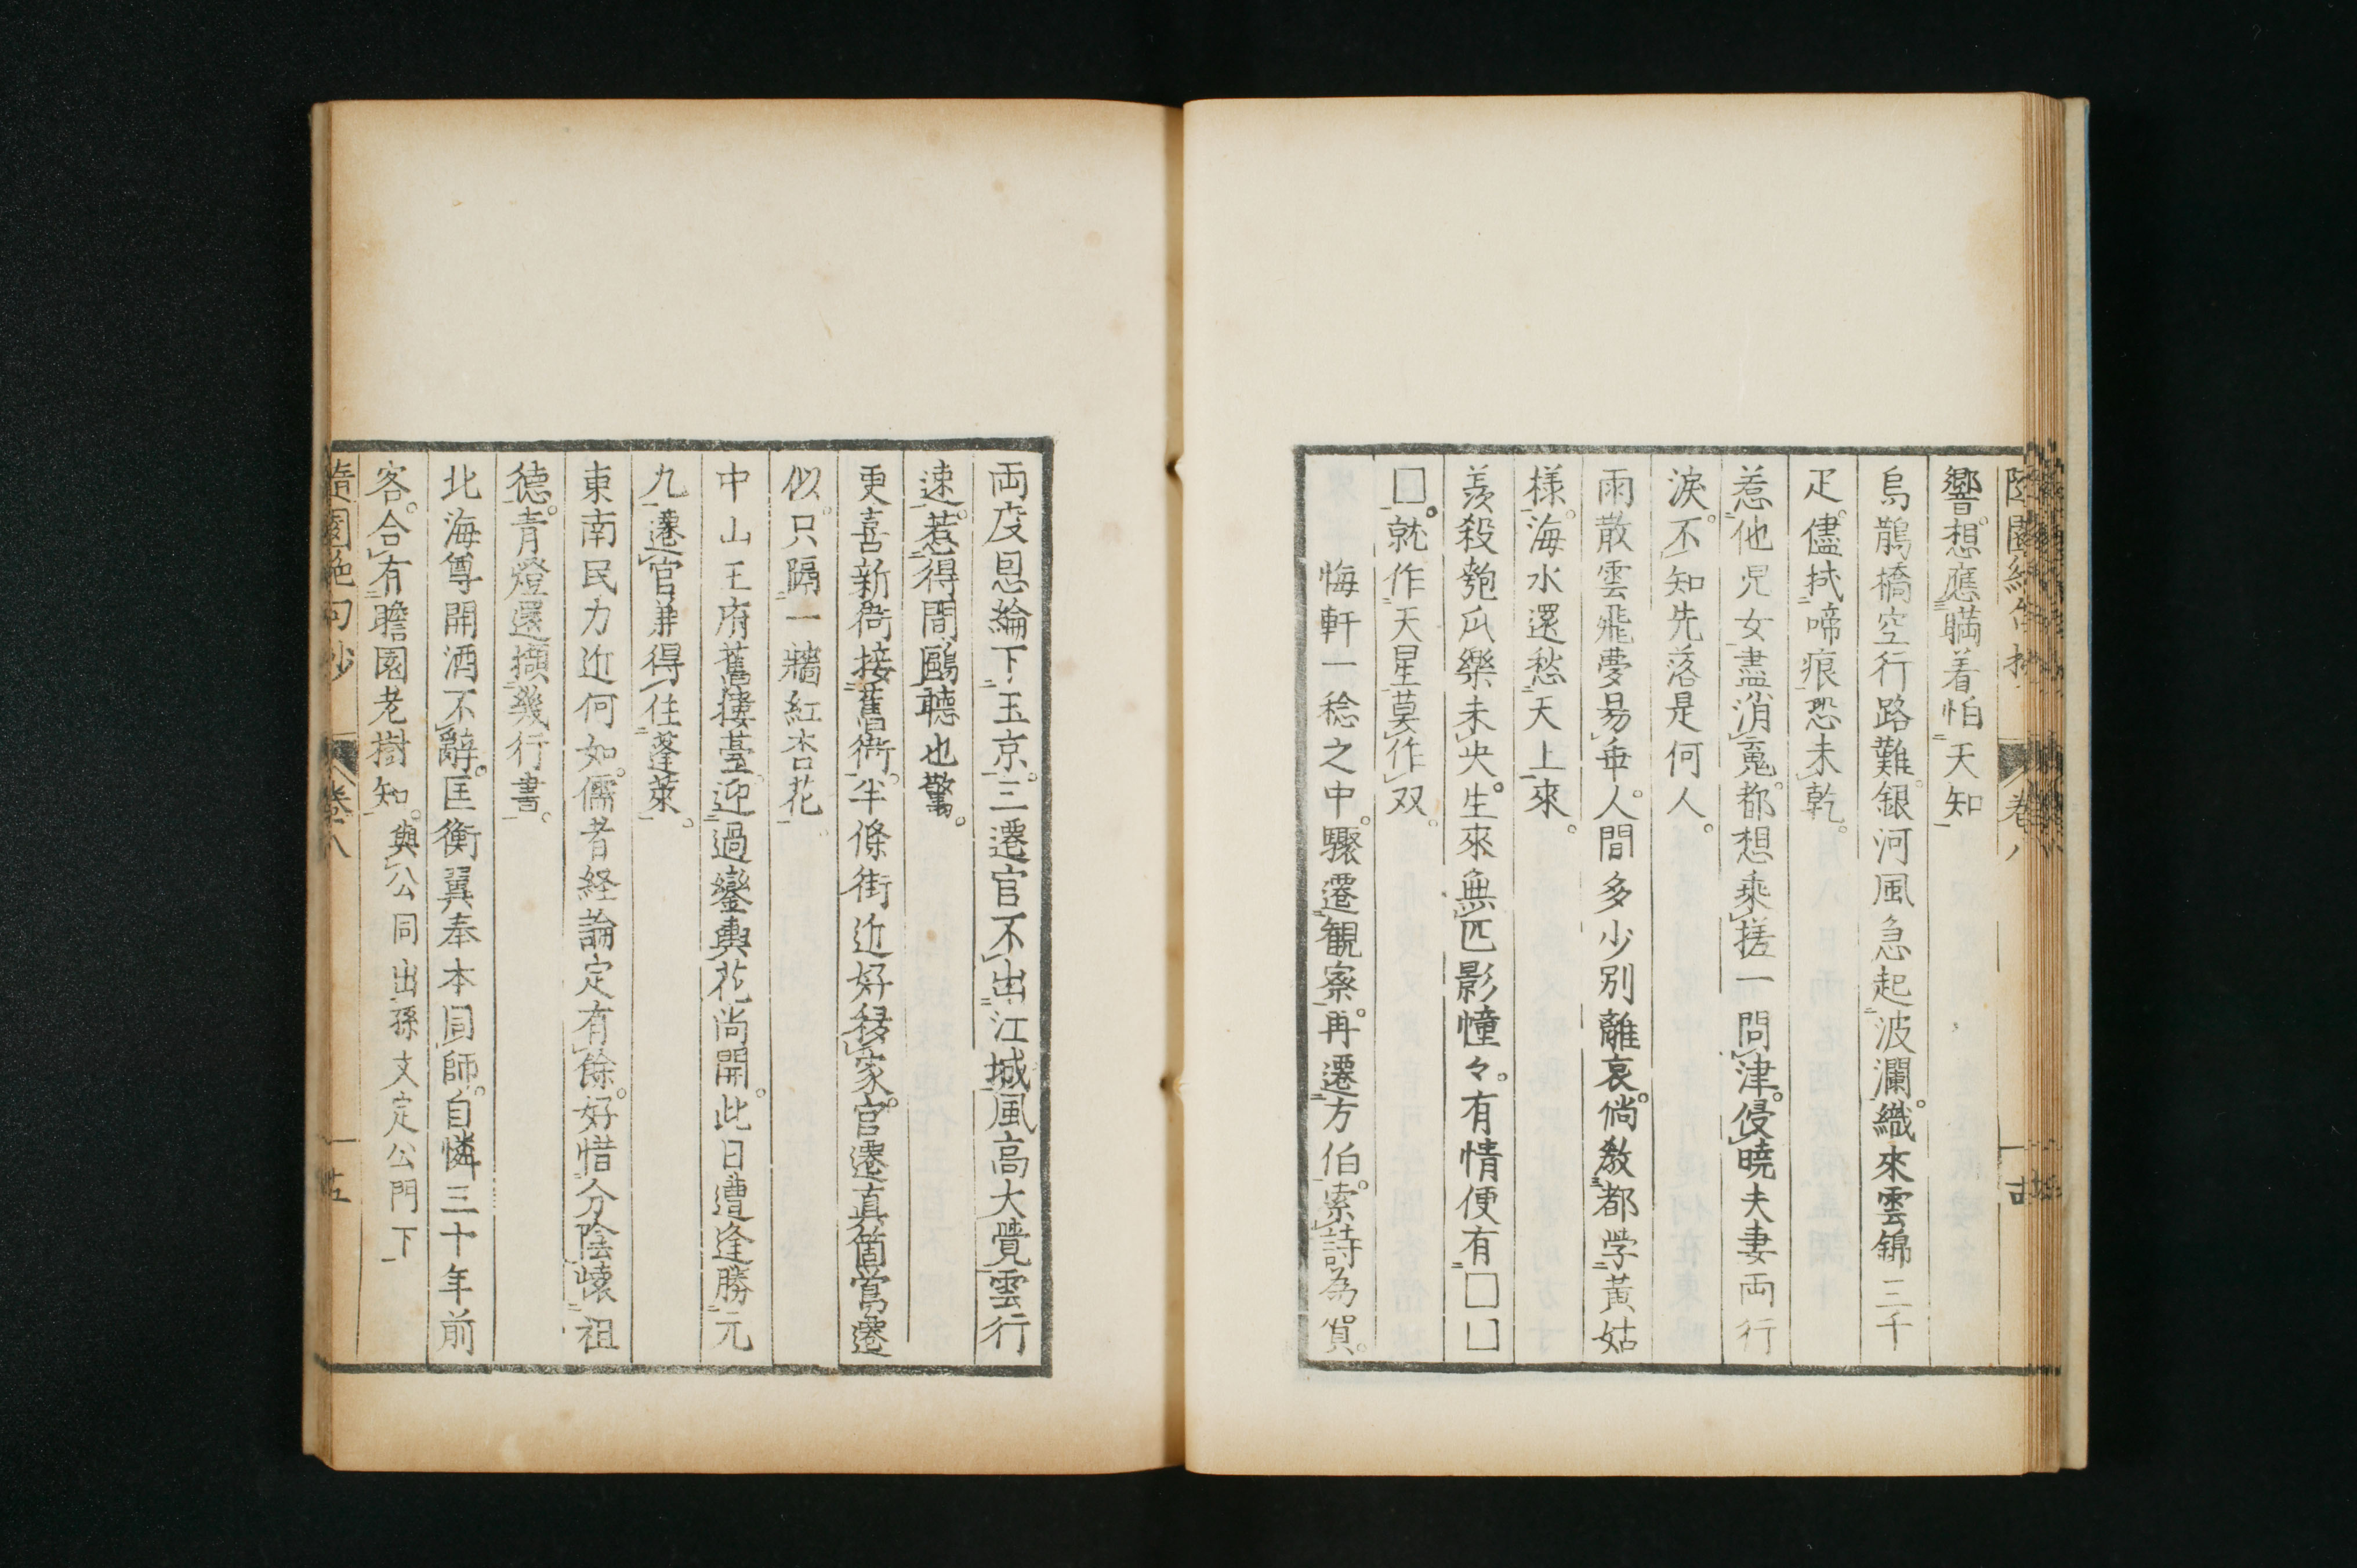 隨園絶句抄 卷八 十四
響。想應瞞着怕天知
烏鵲橋空行路難。銀河風急起波瀾。織來雲錦三千
疋。儘拭啼痕恐未乾。
惹他児女盡消䰟。都想乘槎一問津。侵曉夫妻両行
淚。不知先落是何人。
雨散雲飛夢易乖。人間多少別離哀。倘教都学黃姑
様。海水還愁天上來。
羨殺匏瓜樂未央。生來無匹影幢々。有情便有□□
□。就作天星莫作双。
悔軒一稔之中。驟遷観察。再遷方伯。索詩為賀。
両度恩綸下玉京。三遷官不出江城。風高大覺雲行
速。惹得閒鷗聴也驚。
更喜新衙接舊衙。半條街近好移家。官遷真箇鶯遷
似。只隔一牆紅杏花。
中山王府舊楼䑓。迎過鑾輿花尚開。此日遭逢勝元
九。遷官兼得住蓬萊。
東南民力近何如。儒者経論定有餘。好惜分陰懐祖
德。青燈還擷幾行書。
北海尊開酒不辭。匡衡翼奉本同師。自憐三十年前
客。合有瞻園老樹知。與公同出孫文定公門下
隨園絶句抄 卷八 十五